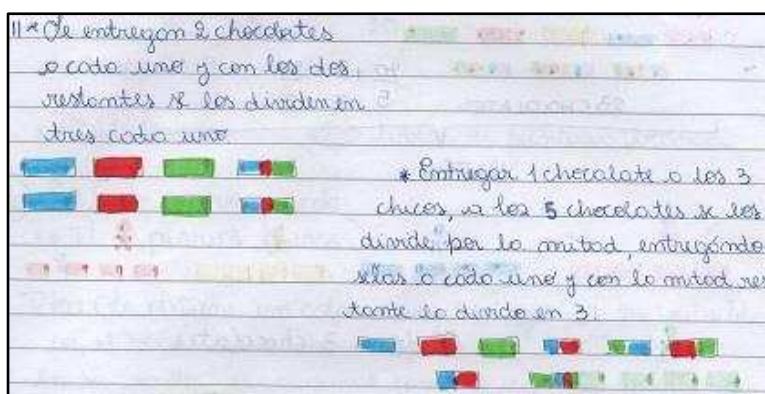 11* Se entregan 2 chocolates
a cada uno y con los dos
restantes se los dividen en
tres cada uno.
* Entregar 1 chocolate a los 3
chicos, a los 5 chocolates se los
divide por la mitad, entregándo
selas a cada uno y con la mitad res
tante la divido en 3.